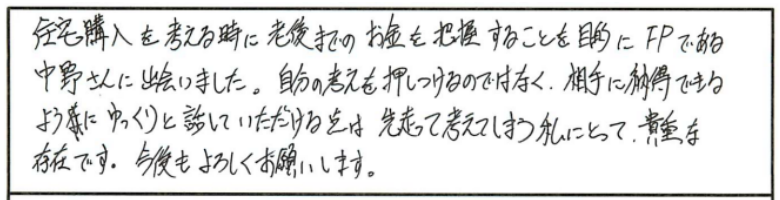 住宅購入を考える時に老後までのお金を把握することを目的にFPである
中野さんに出会いました。自分の考えを押しつけるのではなく、相手に納得できる
よう様にゆっくりと話していただける点は先走って考えてしまう私にとって、貴重な
存在です。今後もよろしくお願いします。